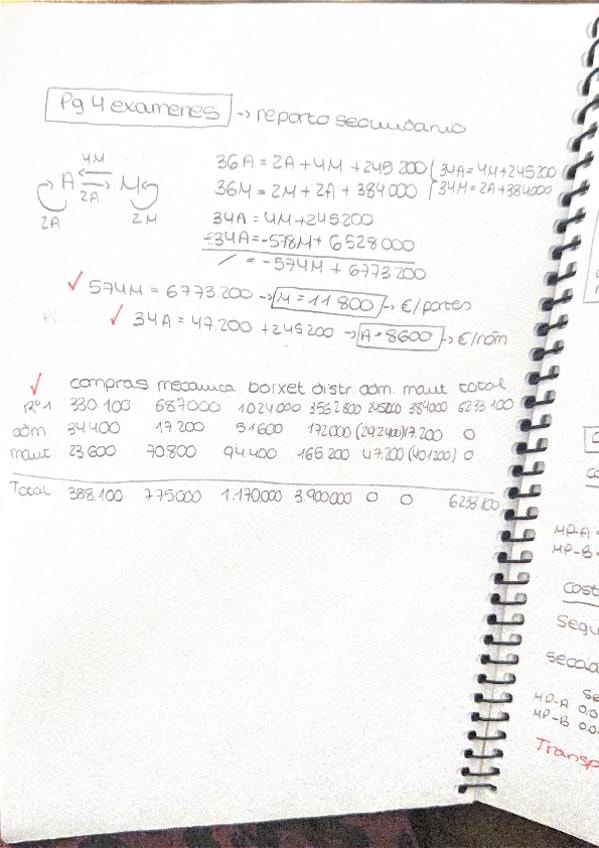 Pg 4 examenes -> reparto secundario
4M
A M
2A
2A 2M
36A = 2A + 4M + 245 200 { 34A = 4M + 245200
36M = 2M + 2A + 384 000 { 34M = 2A + 384000
34A = 4M + 245200
-34A = -578M + 6528000
/ = -574M + 6773200
✓ 574M = 6773.200 -> M = 11 800 -> €/partes
✓ 34A = 47.200 + 245200 -> A = 8600 -> €/nóm
✓ compras mecanica boixet distr. adm. mant total
Rº1 330 100 687000 1024000 3562800 245200 384000 6233 100
adm 34400 17200 51600 172000 (292400) 17.200 0
mant. 23600 70.800 94400 165200 47.200 (401200) 0
Total 388.100 775000 1.170000 3900000 0 0 6238100
MP-A =
MP-B =
cost
segu
secció
se
MP-A 0,0
MP-B 0,0
Transp